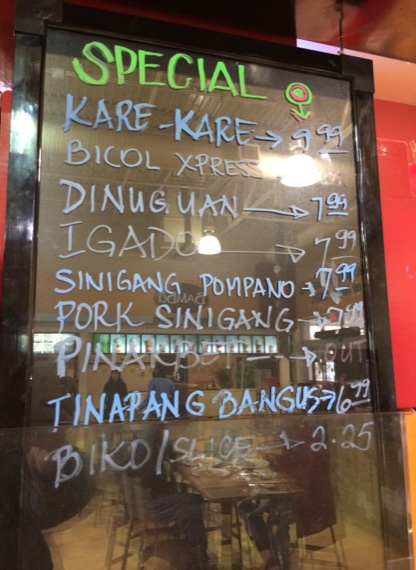 SPECIAL
KARE-KARE → 9.99
BICOL XPRESS
DINUGUAN → 7.99
IGADO → 7.99
SINIGANG POMPANO → 7.99
PORK SINIGANG → 7.99
PINAKBET → OUT
TINAPANG BANGUS → 6.99
BIKO/SLICE → 2.25